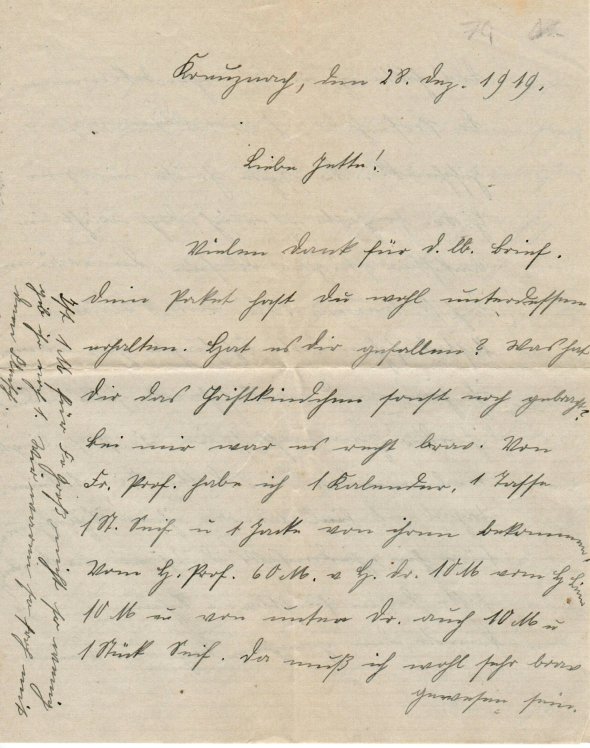 Kreuznach, den 28. Dez. 1919.
Liebe Jette!
Vielen Dank für d. lb. Brief.
Dein Paket hast Du wohl unterdessen
erhalten. Hat es dir gefallen? Was hat
dir das Christkindchen sonst noch gebracht?
Bei mir war es recht brav. Von
Fr. Prof. habe ich 1 Kalender, 1 Tasse
1 St. Seif u 1 Jacke von ihrem bekommen,
Vom H. Prof. 60 M. v H. Dr. 10 M vom H
10 M u von unten Dr. auch 10 M u
1 Stück Seif. Da muß ich wohl sehr brav
gewesen sein.
1 M für nicht so wenig
gab sie noch 1. Wir waren